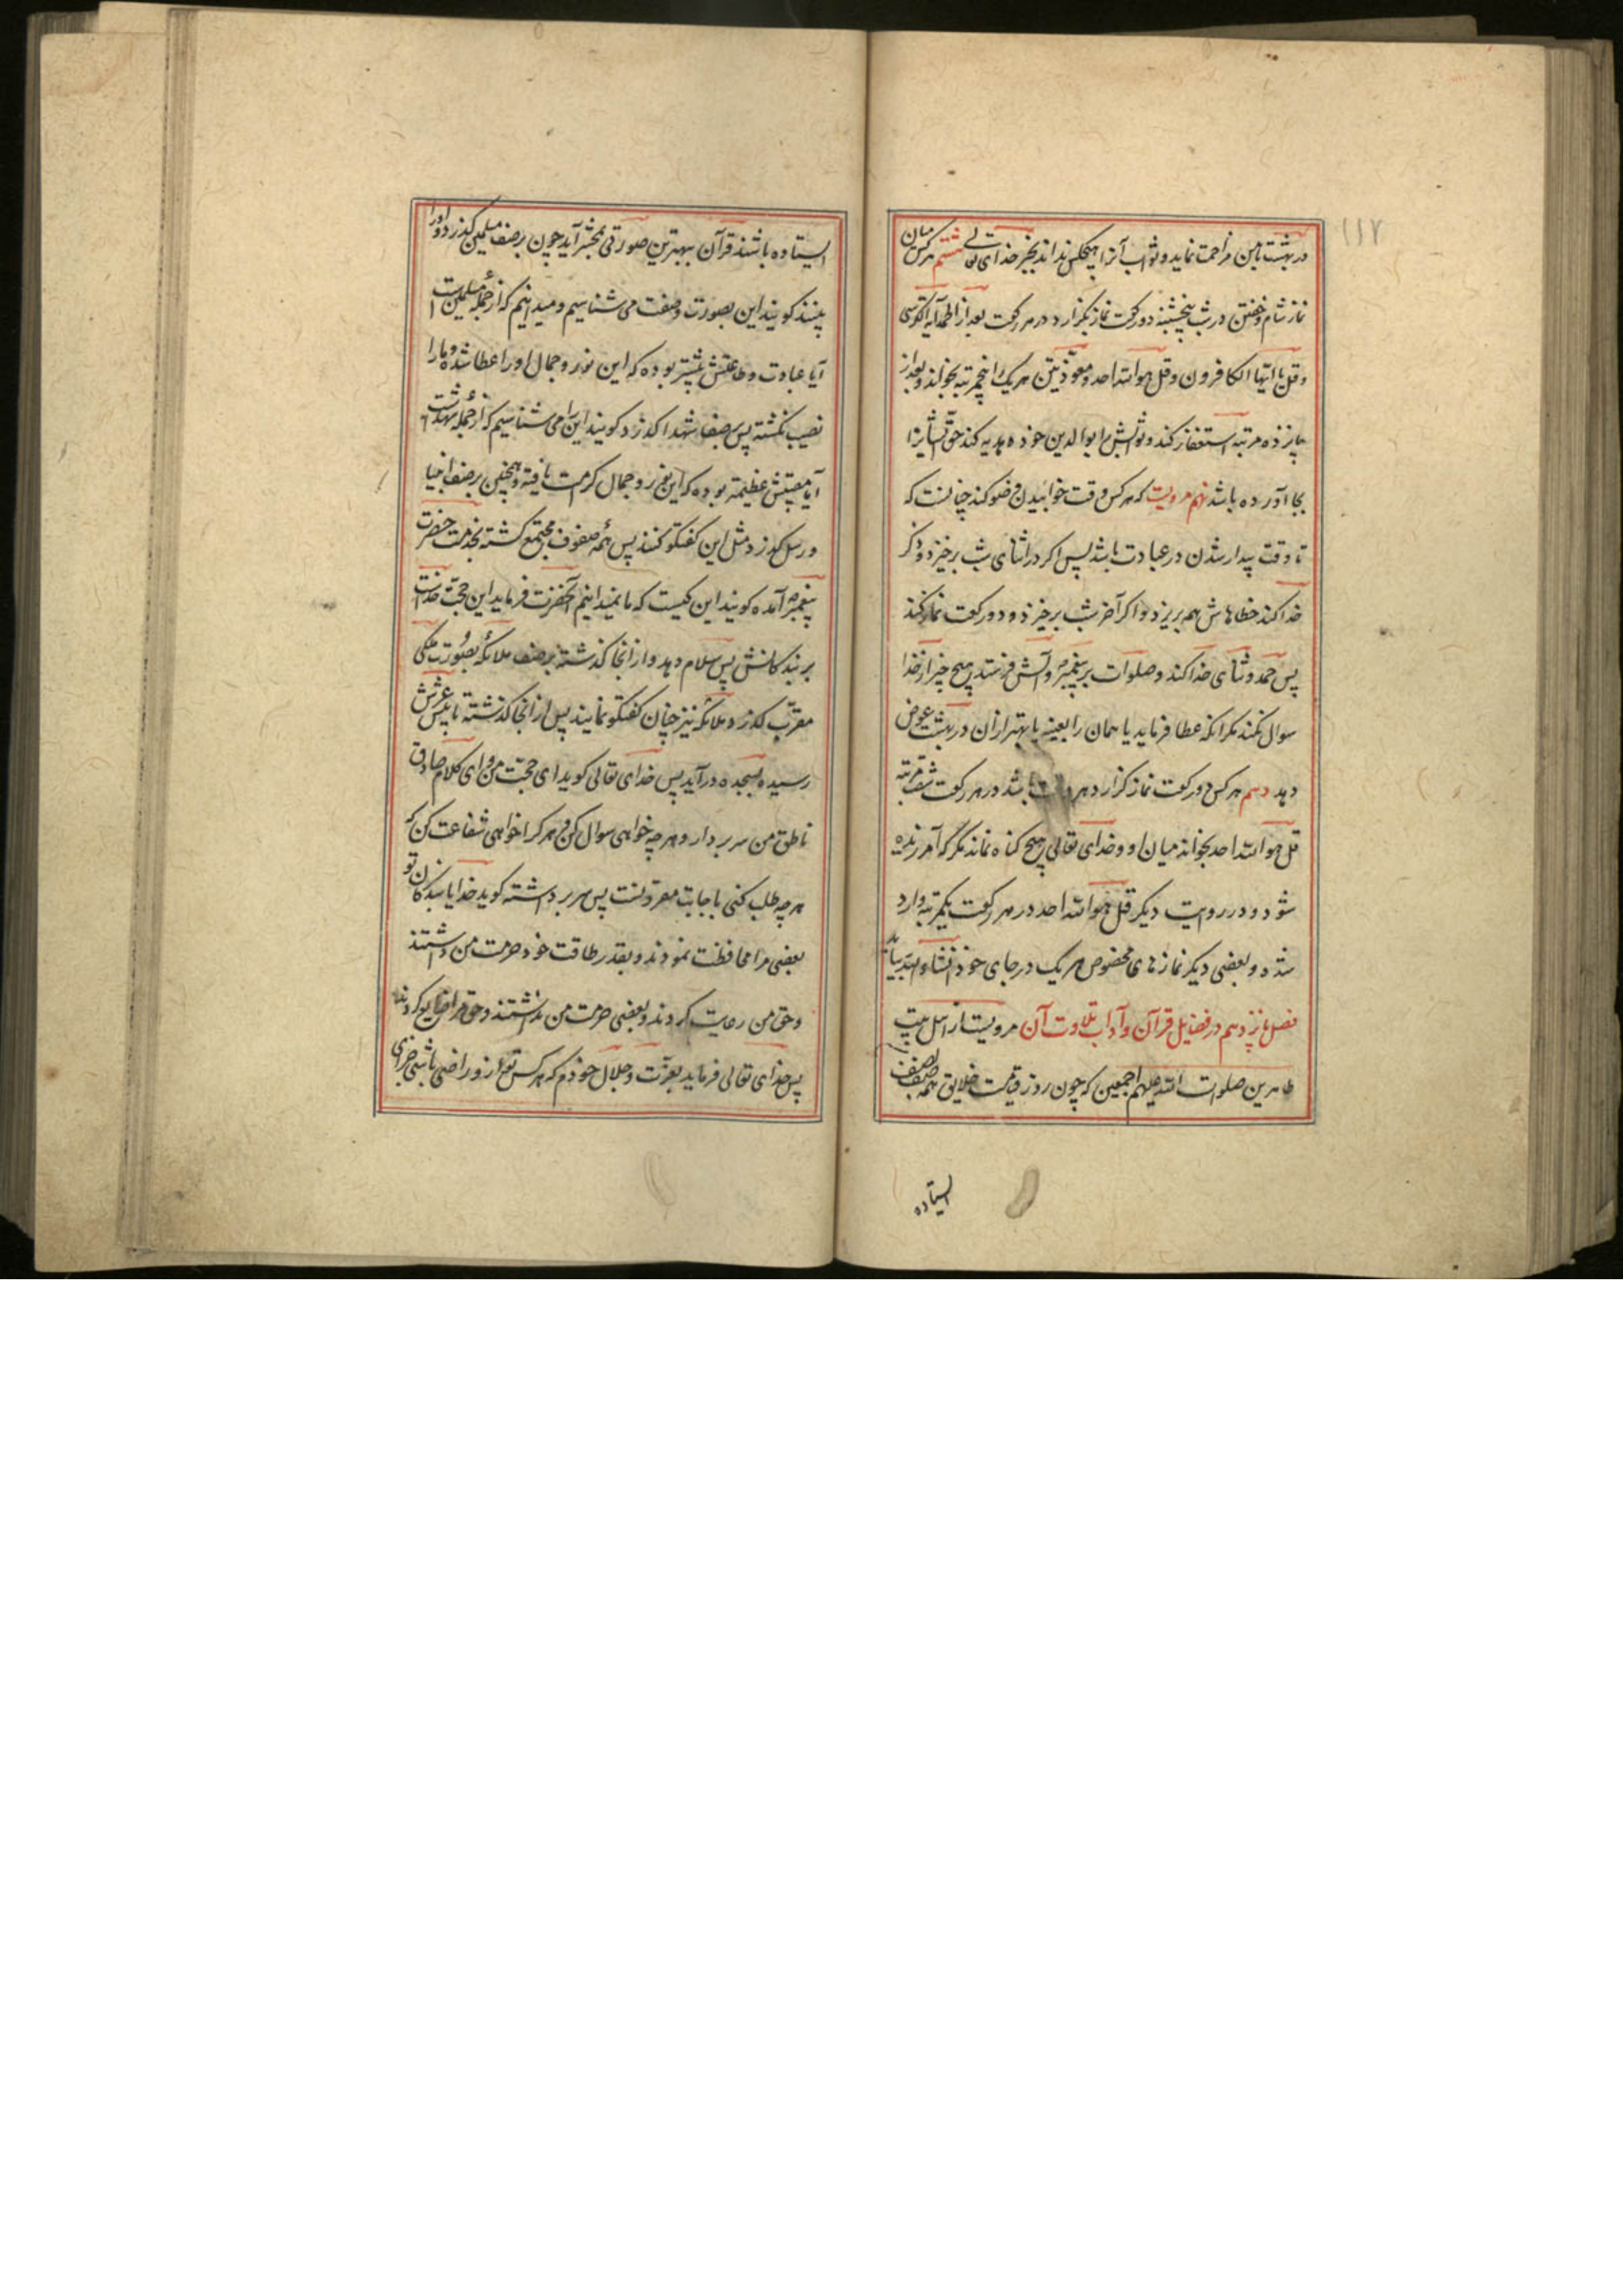 ۱۱۷
در بهشت با من مزاحمت نماید و ثواب آنرا هیچکس نداند بجز خدای تعالی هشتم هر کس میان
نماز شام و خفتن در شب پنجشنبه دو رکعت نماز بگزارد در هر رکعت بعد از الحمد آیة الکرسی
و قل یا ایها الکافرون و قل هو الله احد و معوذتین هر یک را پنجمرتبه بخواند و بعد از
پانزده مرتبه استغفار کند و ثوابش را بوالدین خود هدیه کند حق ایشانرا
بجا آورده باشد نهم مرویست که هر کس وقت خوابیدن وضو کند چنانست که
تا وقت بیدار شدن در عبادت باشد پس اکر در اثنای شب برخیزد و ذکر
خدا کند خطاهاش هم بریزد و اکر آخر شب برخیزد و دو رکعت نماز کند
پس حمد و ثنای خدا کند و صلوات بر پیغمبر و آلش فرستد هیچ چیز از خدا
سوال نکند مکر انکه عطا فرماید یا همان را بعینه یا بهتر از ان در بهشت عوض
دهد دهم هر کس دو رکعت نماز کزارد هر باشد در هر رکعت شصت مرتبه
قل هو الله احد بخواند میان او و خدای تعالی هیچ کناه نماند مکر که آمرزیده
شود و در روایت دیکر قل هو الله احد در هر رکعت یکمرتبه وارد
شده و بعضی دیکر نمازهای مخصوص هر یک در جای خود انشاء الله بیاید
فصل یازدهم در فضایل قرآن و آداب تلاوت آن مرویست از اهل بیت
طاهرین صلوات الله علیهم اجمعین که چون روز قیامت خلایق همه صف بصف
ایستاده
ایستاده باشند قرآن ببهترین صورتی بمحشر آید چون بر صف مسلمین کذرد و او را
بینند کویند این بصورت و صفت می شناسیم و میدانیم که از جمله مسلمین است
آیا عبادت و طاعتش بیشتر بوده که این نور و جمال او را عطا شده و ما را
نصیب نکشته پس بر صف شهدا کذرد کویند این را می شناسیم که از جمله شهداست
آیا مصیبتش عظیمتر بوده که این نور و جمال کرامت یافته و همچنین بر صف انبیا
و رسل کذرد و مثل این کفتکو کنند پس همه صفوف مجتمع کشته بخدمت حضرت
پیغمبر آمده کویند این کیست که ما نمیدانیم آنحضرت فرماید این حجت خداست
بر بندکانش پس سلام دهد و از انجا کذشته بر صف ملائکه بصورت ملکی
مقرب کذرد و ملائکه نیز چنان کفتکو نمایند پس از انجا کذشته تا بپیش عرش
رسیده بسجده درآید پس خدای تعالی کوید ای حجت من و ای کلام صادق
ناطق من سر بردار و هر چه خواهی سوال کن و هر کرا خواهی شفاعت کن که
هر چه طلب کنی باجابت مقرونست پس سر برداشته کوید خدایا بندکان تو
بعضی مرا محافظت نمودند و بقدر طاقت خود حرمت من داشتند
و حق من رعایت کردند و بعضی حرمت من نداشتند و حق مرا ضایع کردند
پس خدای تعالی فرماید بعزت و جلال خودم که هر کس تو از و راضی باشی جزای